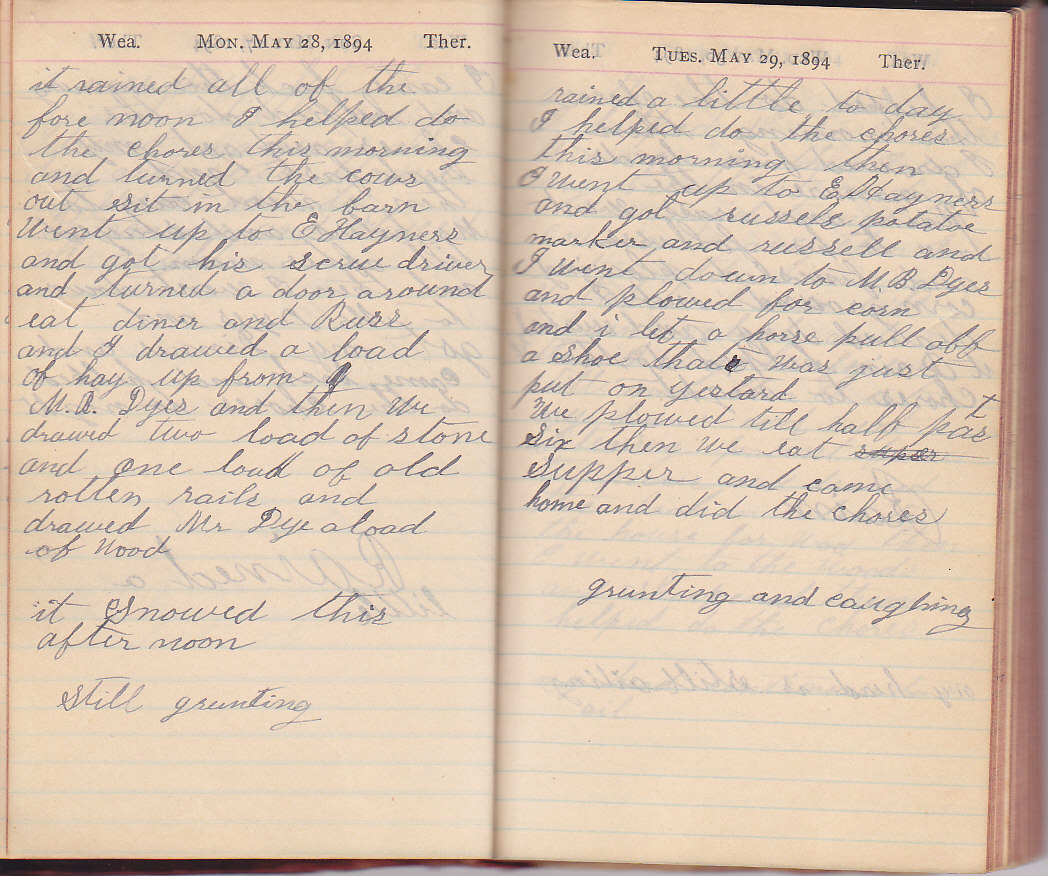 Wea. Mon. May 28, 1894 Ther.
it rained all of the
fore noon I helped do
the chores this morning
and turned the cows
out sit in the barn
Went up to E Hayners
and got his screw driver
and turned a door around
eat diner and Russ
and I drawed a load
of hay up from
M.B. Dyes and then We
drawed two load of stone
and one load of old
rotten rails and
drawed Mr Dye a load
of wood
it Snowed this
after noon
still grunting
Wea. Tues. May 29, 1894 Ther.
rained a little to day
I helped do the chores
this morning then
I Went up to E Hayners
and got russels potatoe
marker and russell and
I Went down to M.B. Dyes
and plowed for corn
and i let a horse pull off
a shoe that was just
put on yestard
We plowed till half past
Six then we eat super
Supper and came
home and did the chores
grunting and caughing